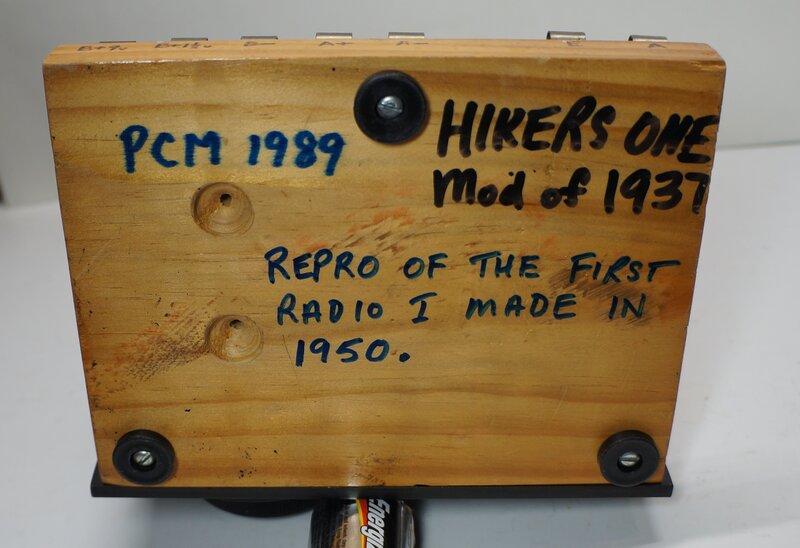 B+ B- A+ A- E A
PCM 1989
HIKERS ONE
Mod of 1937
REPRO OF THE FIRST
RADIO I MADE IN
1950.
Energiz